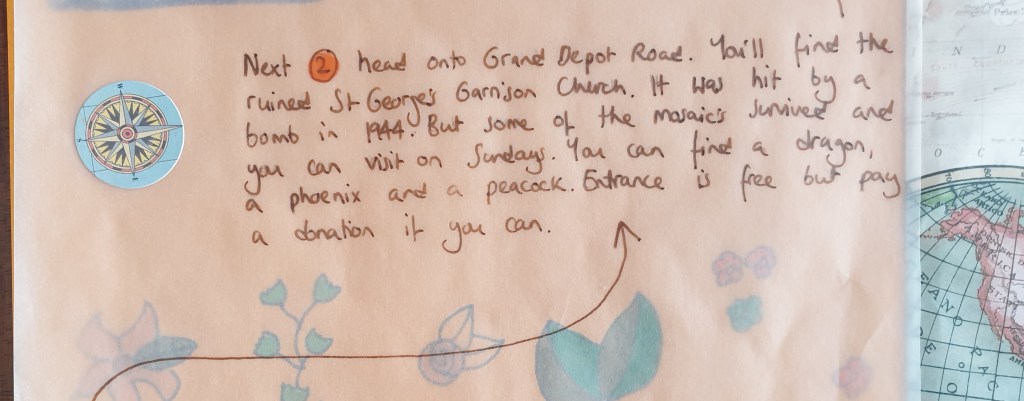 Next 2 head onto Grand Depot Road. You'll find the
ruined St George's Garrison Church. It was hit by a
bomb in 1944. But some of the mosaics survived and
you can visit on Sundays. You can find a dragon,
a phoenix and a peacock. Entrance is free but pay
a donation if you can.